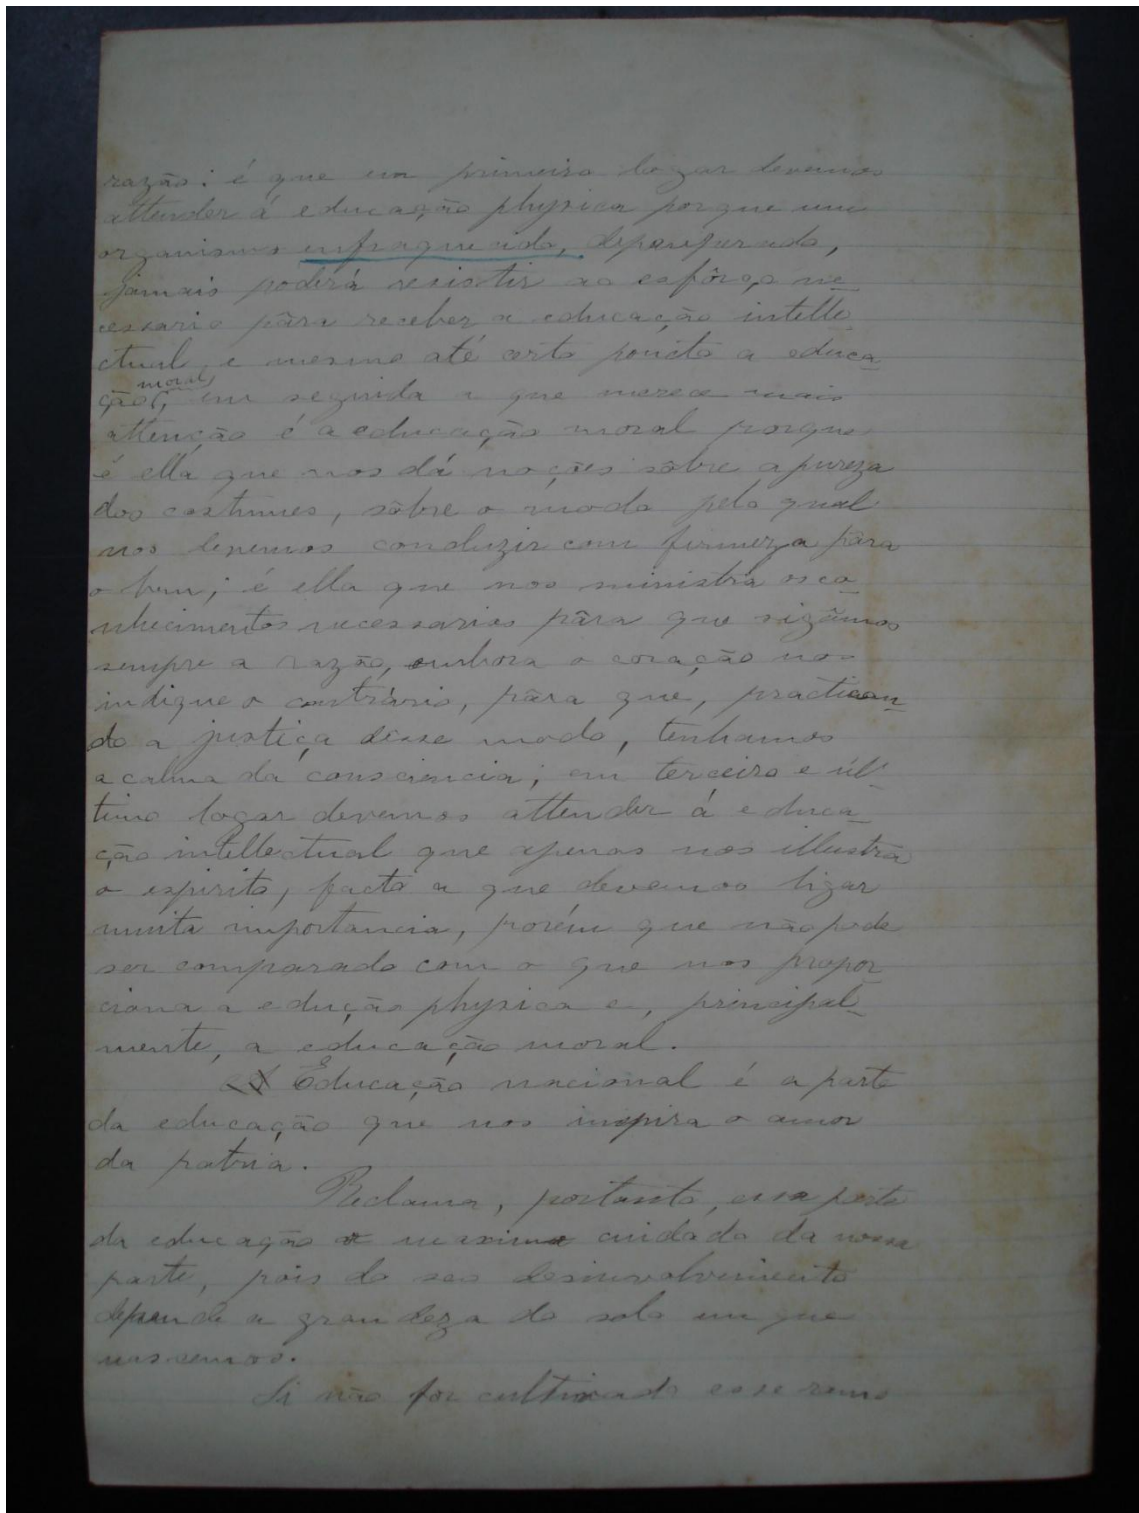 razão: é que em primeiro logar devemos
attender á educação physica porque um
organismo enfraquecido, depauperado,
jamais poderá resistir ao esfôrço ne-
cessario pâra receber a educação intelle-
ctual e mesmo até certo poncto a educa-
ção moral, em seguida a que merece mais
attenção é a educação moral porque
é ella que nos dá noções sôbre a pureza
dos costumes, sôbre o modo pelo qual
nos devemos conduzir com firmeza pâra
o bem; é ella que nos ministra os co-
nhecimentos necessarios pâra que sigâmos
sempre a razão, embora o coração nos
indique o contrário, pâra que, practican-
do a justiça desse modo, tenhamos
a calma da consciencia; em terceiro e úl-
timo logar devemos attender á educa-
ção intellectual que apenas nos illustra
o espirito, facto a que devemos ligar
muita importancia, porém que não pode
ser comparado com o que nos propor-
ciona a edução physica e, principal-
mente, a educação moral.
Educação nacional é a parte
da educação que nos inspira o amor
da patria.
Reclama, portanto, essa parte
da educação o maximo cuidado da nossa
parte, pois do seu desinvolvimento
depende a grandeza do solo em que
nascemos.
Si não for cultivado esse ramo